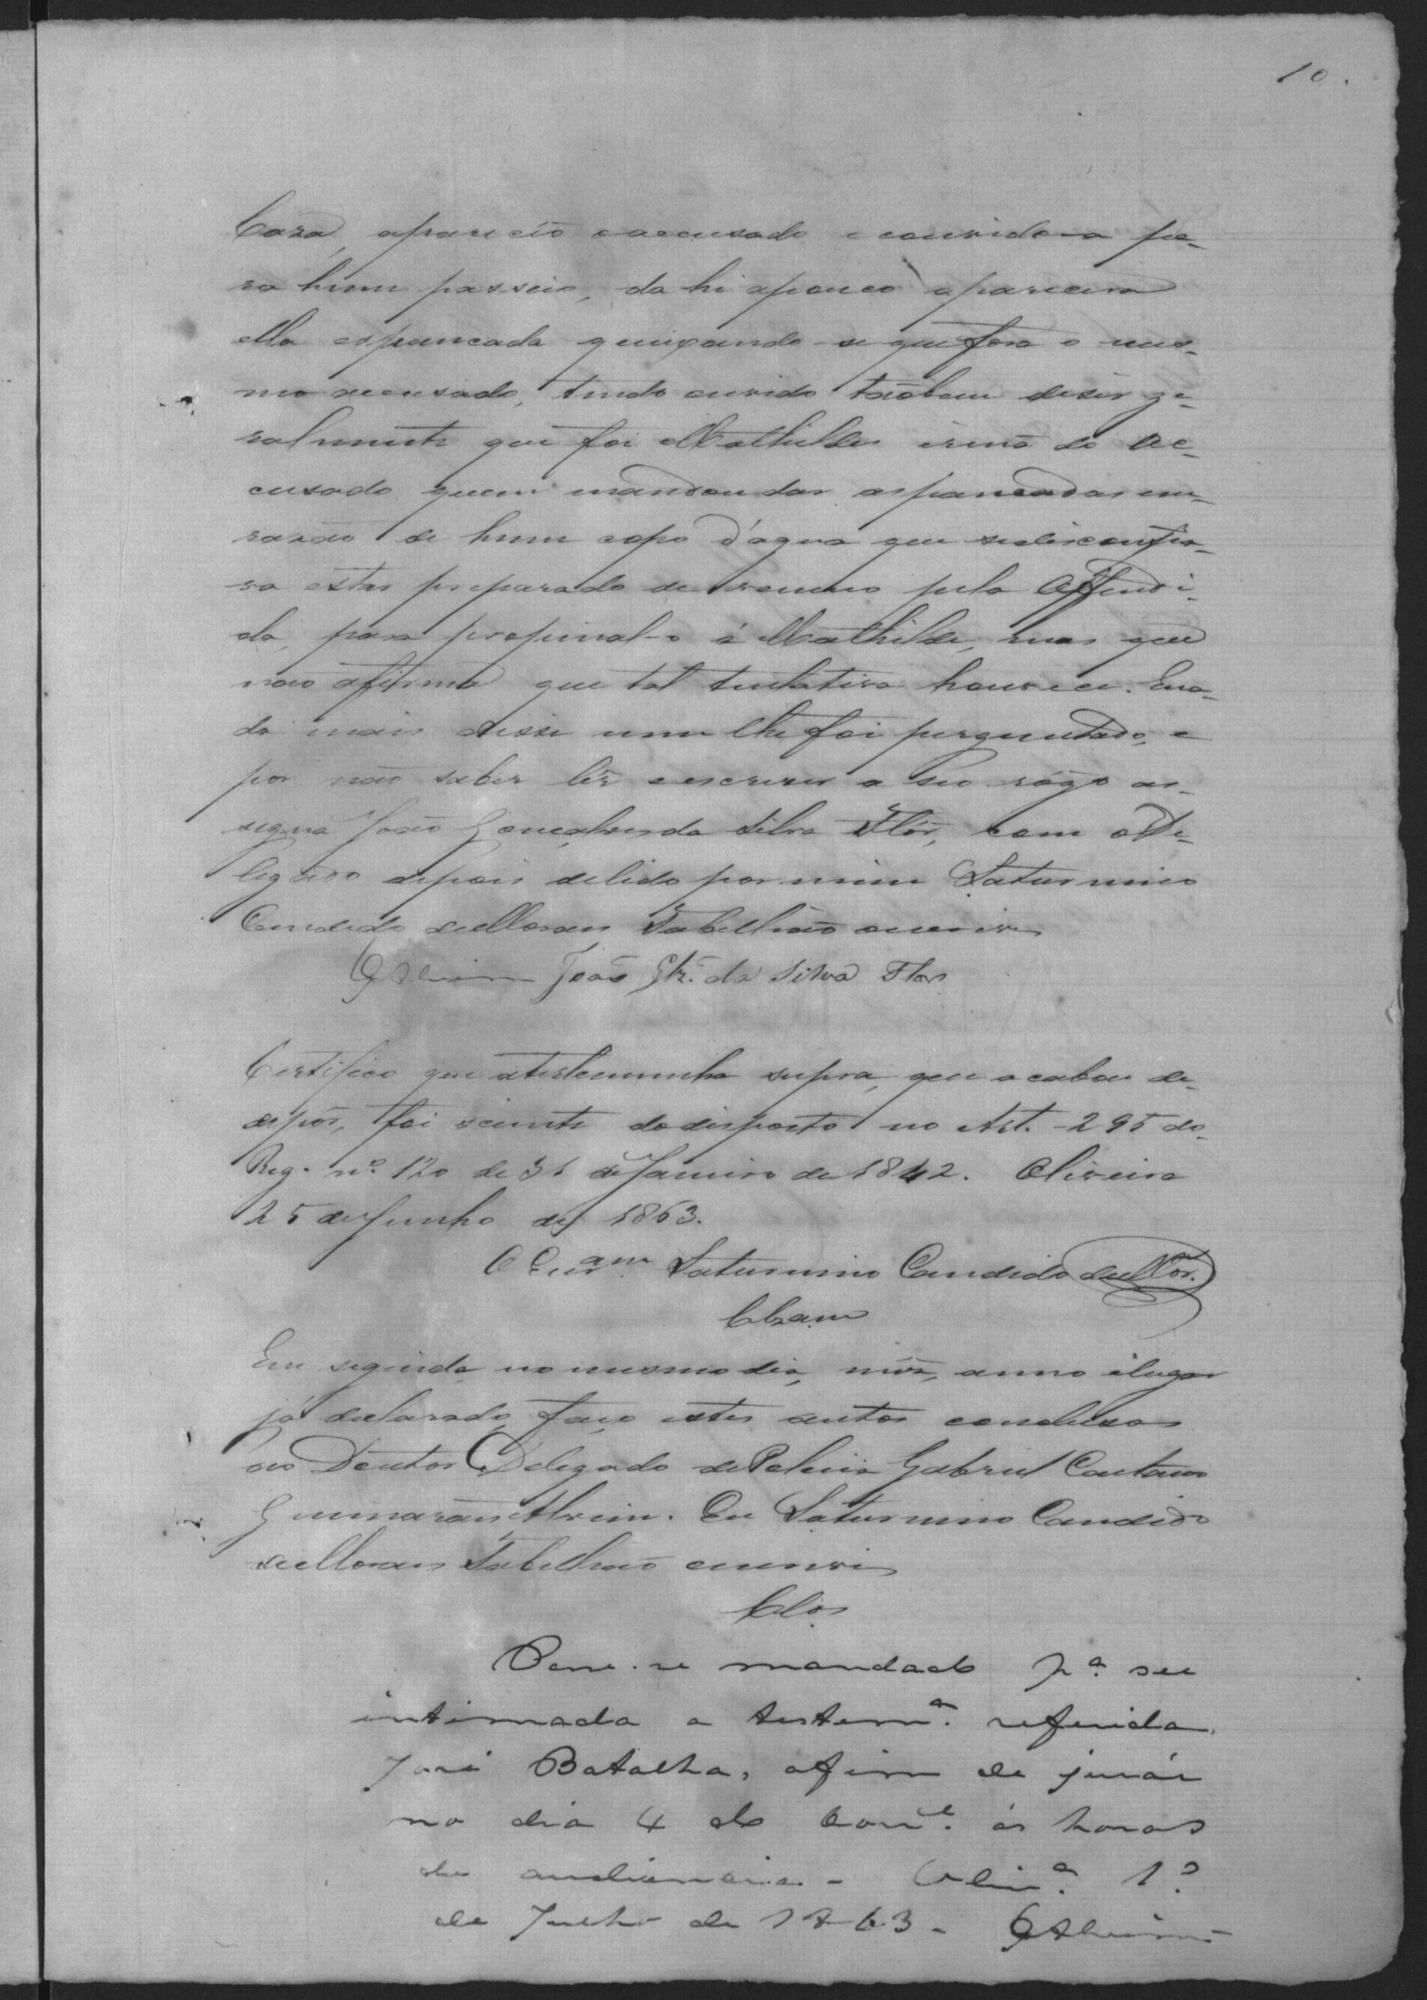 10.
Caza, apareceo o accusado e convidou-a pa-
ra hum passeio, dahi apouco aparecera
ella espancada queixando-se que fora o mes-
mo accusado, tendo ouvido taobem diser ge-
ralmente que foi Mathildes irmã do ac-
cusado quem mandou dar as pancadas em
rasão de hum copo d'agua que sedisconfia-
va estar preparado de veneno pela Offendi-
da, para propinal-o á Mathilde, mas que
não afirma que tal tentativa houvece. Ena-
da mais disse nem lhe foi perguntado, e
por não saber lêr e escrever a seo rôgo as-
signa João Gonçalves da Silva Flôr, com o De-
legado depois de lido por mim Saturnino
Candido de Moraes Tabellião escrevi
GAlvim João Glz. da Silva Flor
Certifico que a testemunha supra, que acabou de
depôr, foi sciente do disposto no Art. 295 do
Reg. nº 120 de 31 de Janeiro de 1842. Oliveira
25 de Junho de 1863.
O Escram Saturnino Candido de Mor.
Clzam
Em seguida no mesmo dia, mêz, anno e lugar
já declarado, faço estes autos conclusos
ao Doutor Delegado de Policia Gabriel Caetano
Guimarães Alvim. Eu Saturnino Candido
de Moraes Tabellião escrevi
Clos
Passe-se mandado pª. ser
intimada a testemª. referida,
José Batalha, afim de jurár
no dia 4 do corre. ás horas
da audiencia - Olivª. 1º
de Julho de 1863 - GAlvim